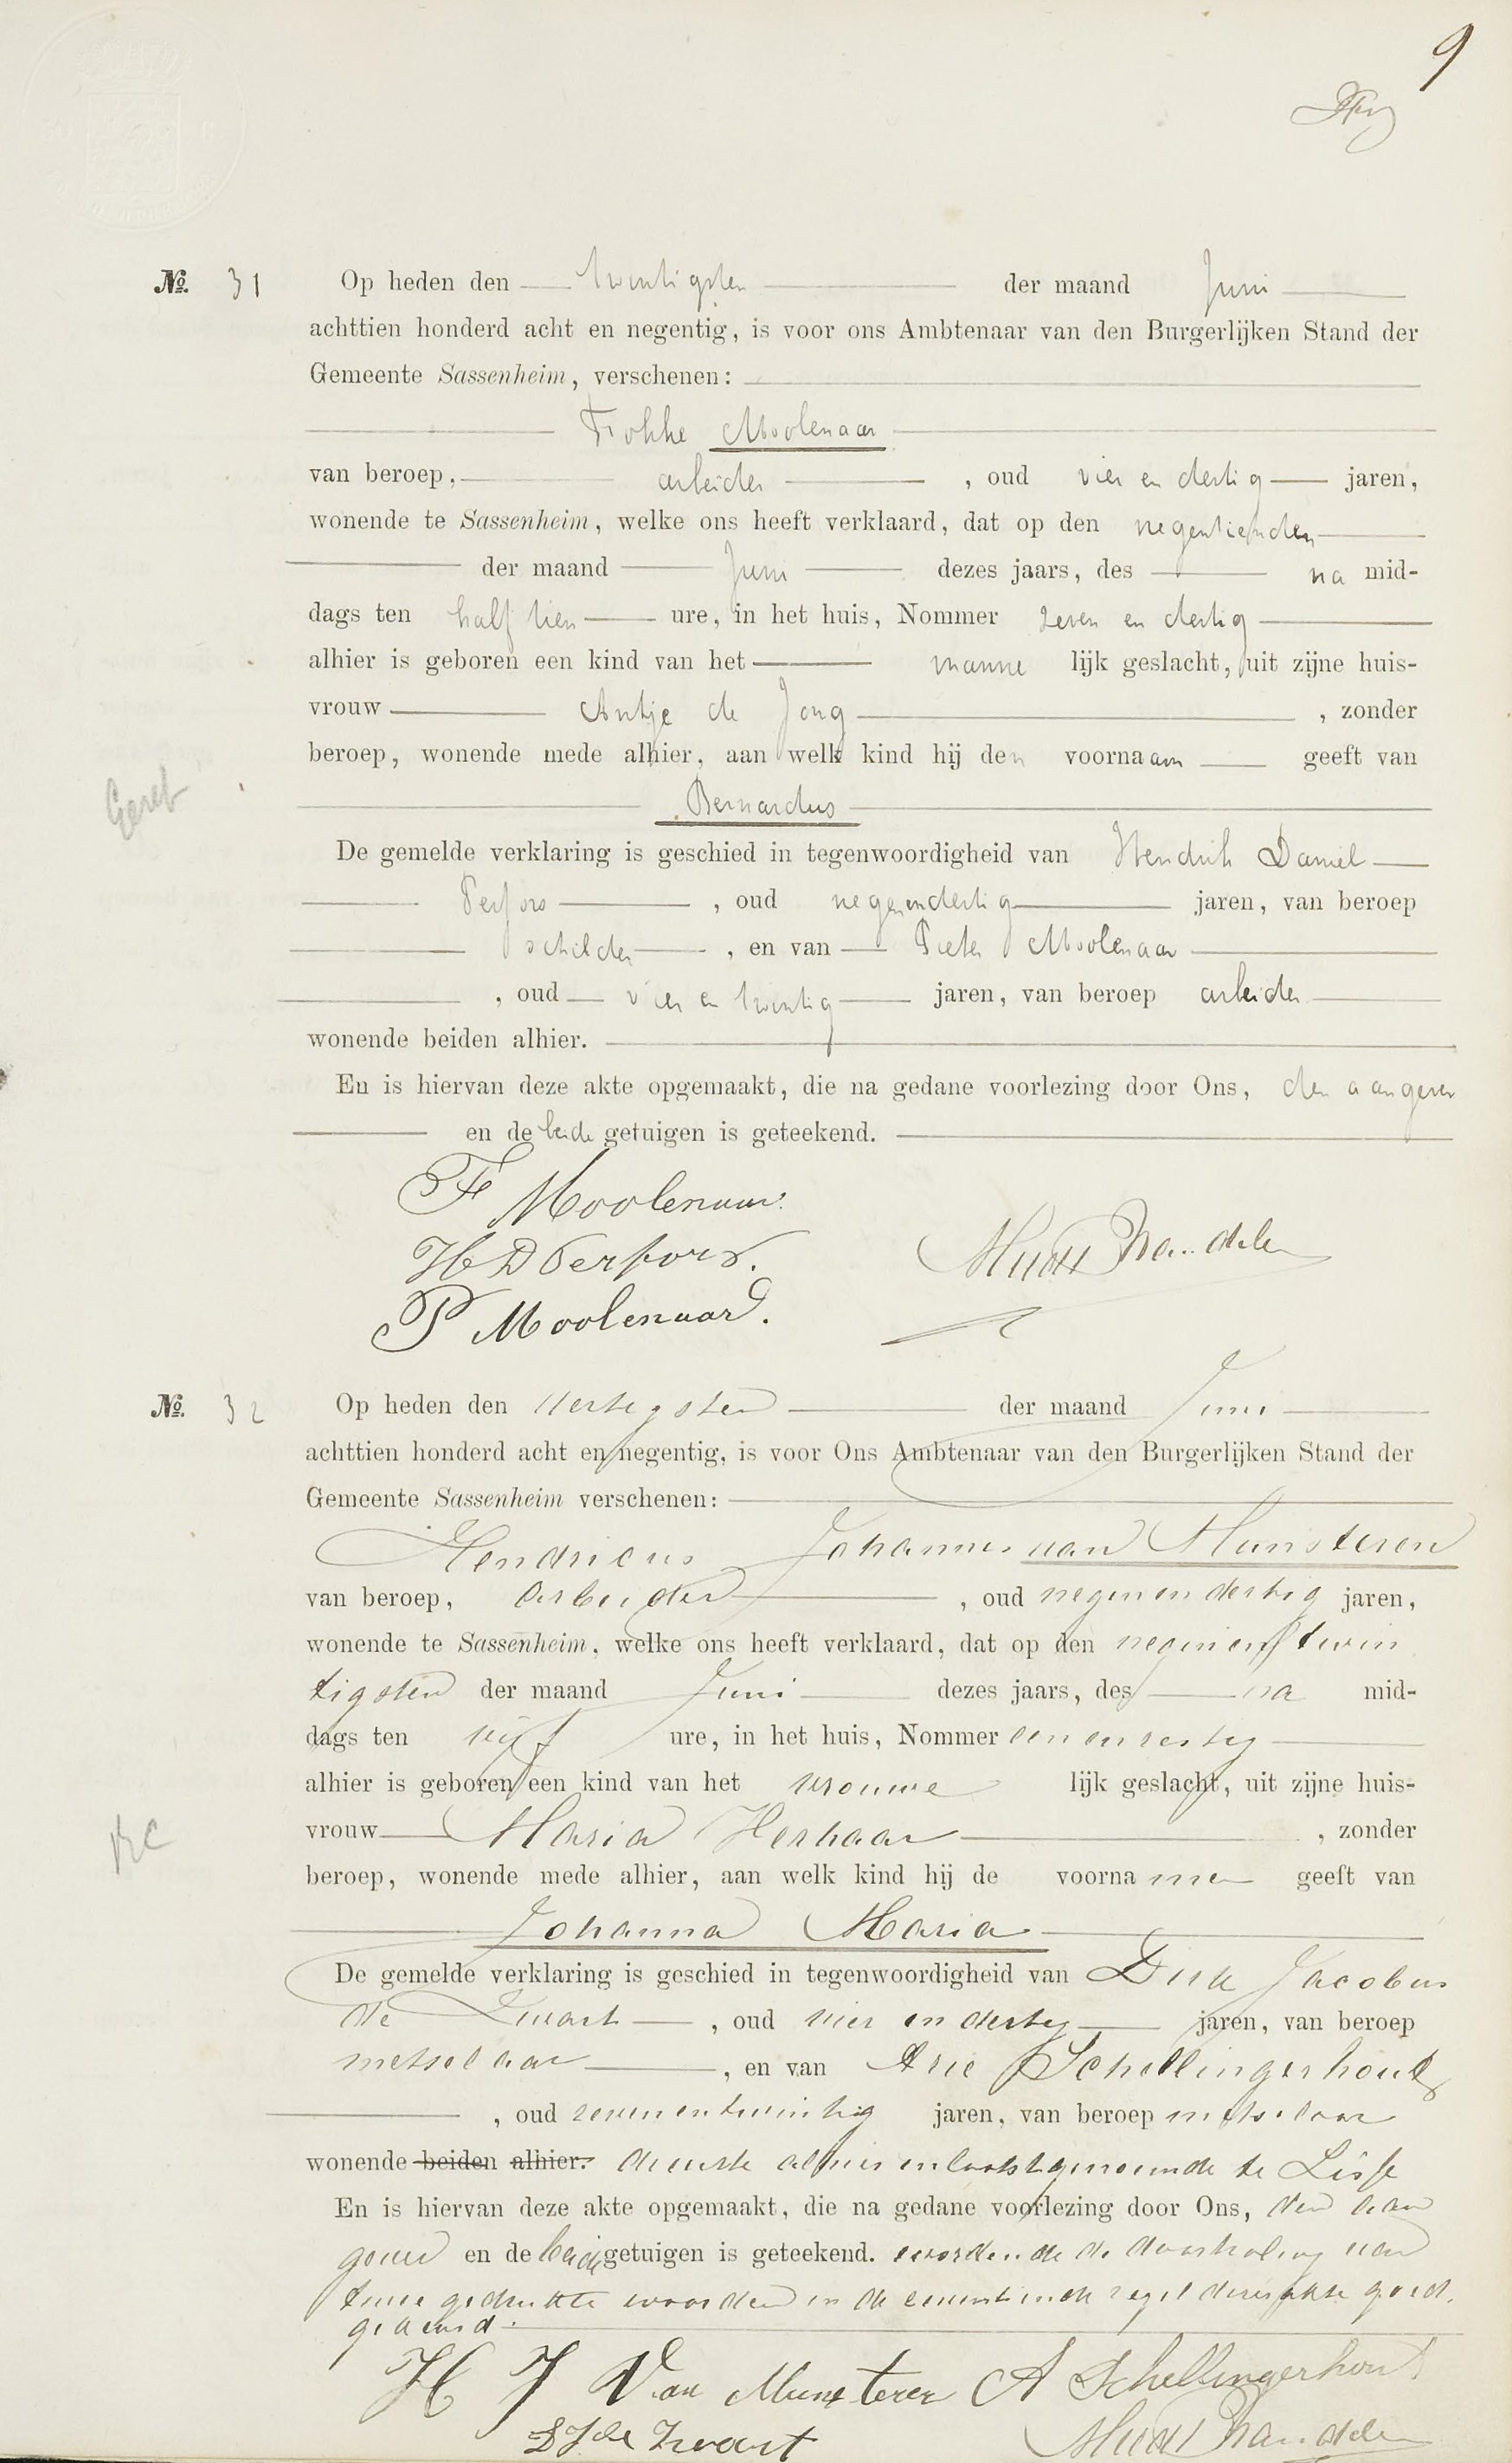 9
No. 31 Op heden den twintigsten der maand Juni
achttien honderd acht en negentig, is voor ons Ambtenaar van den Burgerlijken Stand der
Gemeente Sassenheim, verschenen:
Fokke Moolenaar
van beroep, arbeider, oud vier en dertig jaren,
wonende te Sassenheim, welke ons heeft verklaard, dat op den negentienden
der maand Juni dezes jaars, des na mid-
dags ten half tien ure, in het huis, Nommer zeven en dertig
alhier is geboren een kind van het manne lijk geslacht, uit zijne huis-
vrouw Antje de Jong, zonder
beroep, wonende mede alhier, aan welk kind hij den voornaam geeft van
Bernardus
Geref
De gemelde verklaring is geschied in tegenwoordigheid van Hendrik Daniel
Perfors, oud negenendertig jaren, van beroep
schilder, en van Pieter Moolenaar
, oud vier en twintig jaren, van beroep arbeider
wonende beiden alhier.
En is hiervan deze akte opgemaakt, die na gedane voorlezing door Ons, den aangever
en de beide getuigen is geteekend.
F Moolenaar.
H D Perfors.
P Moolenaar.
No. 32 Op heden den dertigsten der maand Juni
achttien honderd acht en negentig, is voor Ons Ambtenaar van den Burgerlijken Stand der
Gemeente Sassenheim verschenen:
Hendricus Johannes van Munsteren
van beroep, arbeider, oud negen en dertig jaren,
wonende te Sassenheim, welke ons heeft verklaard, dat op den negen en twin
tigsten der maand Juni dezes jaars, des na mid-
dags ten vijf ure, in het huis, Nommer een en zestig
alhier is geboren een kind van het vrouwe lijk geslacht, uit zijne huis-
vrouw Maria Herhaar, zonder
beroep, wonende mede alhier, aan welk kind hij de voorna men geeft van
RC
Johanna Maria
De gemelde verklaring is geschied in tegenwoordigheid van Dirk Jacobus
de Zwart, oud vier en dertig jaren, van beroep
metselaar, en van Arie Schellingerhout
, oud zevenentwintig jaren, van beroep metselaar
wonende beiden alhier. de eerste alhier en laatstgenoemde te Lisse
En is hiervan deze akte opgemaakt, die na gedane voorlezing door Ons, den aan
gever en de beide getuigen is geteekend. wordende de doorhaling van
twee gedrukte woorden in de eenentwintigste regel dezer akte goed-
gekeurd.
H J Van Munsteren A Schellingerhout
D J de Zwart